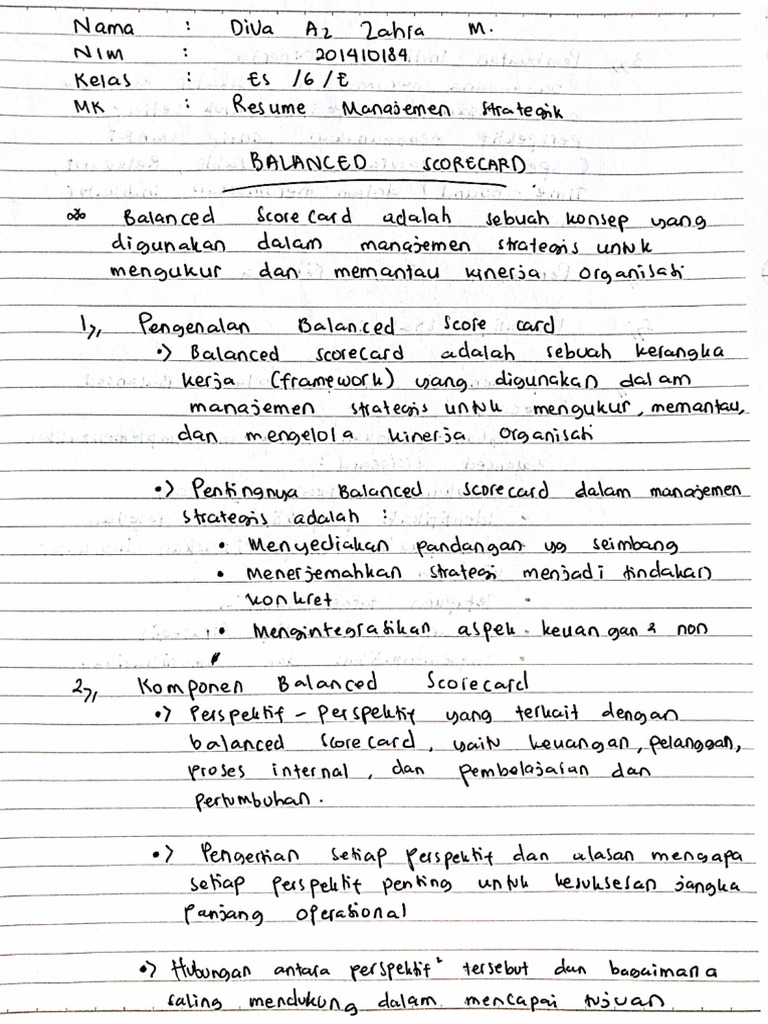 Nama : Diva Az Zahra M.
NIM : 201410184
Kelas : ES /6/E
MK : Resume Manajemen Strategik
BALANCED SCORECARD
Balanced Score card adalah sebuah konsep yang
digunakan dalam manajemen strategis untuk
mengukur dan memantau kinerja organisasi
1) Pengenalan Balanced Score card
•> Balanced scorecard adalah sebuah kerangka
kerja (framework) yang digunakan dalam
manajemen strategis untuk mengukur, memantau,
dan mengelola kinerja organisasi
•> Pentingnya Balanced scorecard dalam manajemen
strategis adalah :
• Menyediakan pandangan yg seimbang
• Menerjemahkan strategi menjadi tindakan
konkret
• Mengintegrasikan aspek keuangan & non
2) Komponen Balanced Scorecard
•> Perspektif - perspektif yang terkait dengan
balanced scorecard, yaitu keuangan, pelanggan,
proses internal, dan pembelajaran dan
pertumbuhan.
•> Pengertian setiap perspektif dan alasan mengapa
setiap perspektif penting untuk kesuksesan jangka
panjang operasional
•> Hubungan antara perspektif² tersebut dan bagaimana
saling mendukung dalam mencapai tujuan